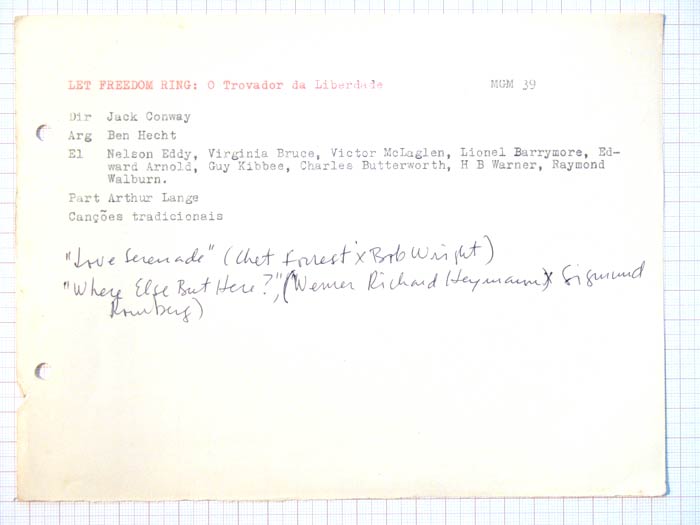 LET FREEDOM RING: O Trovador da Liberdade MGM 39
Dir Jack Conway
Arg Ben Hecht
El Nelson Eddy, Virginia Bruce, Victor McLaglen, Lionel Barrymore, Ed-
ward Arnold, Guy Kibbee, Charles Butterworth, H B Warner, Raymond
Walburn.
Part Arthur Lange
Canções tradicionais
"Love Serenade" (Chet Forrest x Bob Wright)
"Where Else But Here?", (Werner Richard Heymann x Sigmund
Romberg)